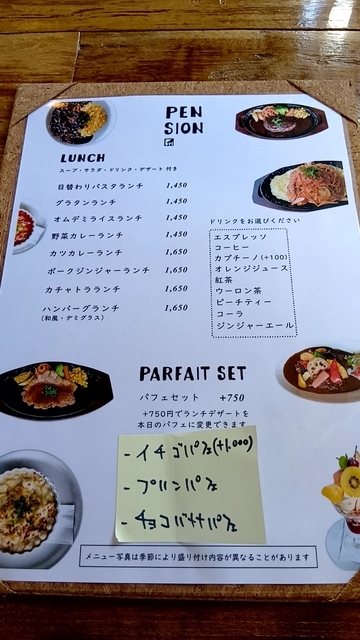 PEN
SION
LUNCH
スープ・サラダ・ドリンク・デザート 付き
日替わりパスタランチ 1,450
グラタンランチ 1,450
オムデミライスランチ 1,450
野菜カレーランチ 1,450
カツカレーランチ 1,650
ポークジンジャーランチ 1,650
カチャトラランチ 1,650
ハンバーグランチ 1,650
(和風・デミグラス)
ドリンクをお選びください
エスプレッソ
コーヒー
カプチーノ(+100)
オレンジジュース
紅茶
ウーロン茶
ピーチティー
コーラ
ジンジャーエール
PARFAIT SET
パフェセット +750
+750円でランチデザートを
本日のパフェに変更できます
- イチゴパフェ(+1,000)
- プリンパフェ
- チョコバナナパフェ
メニュー写真は季節により盛り付け内容が異なることがあります